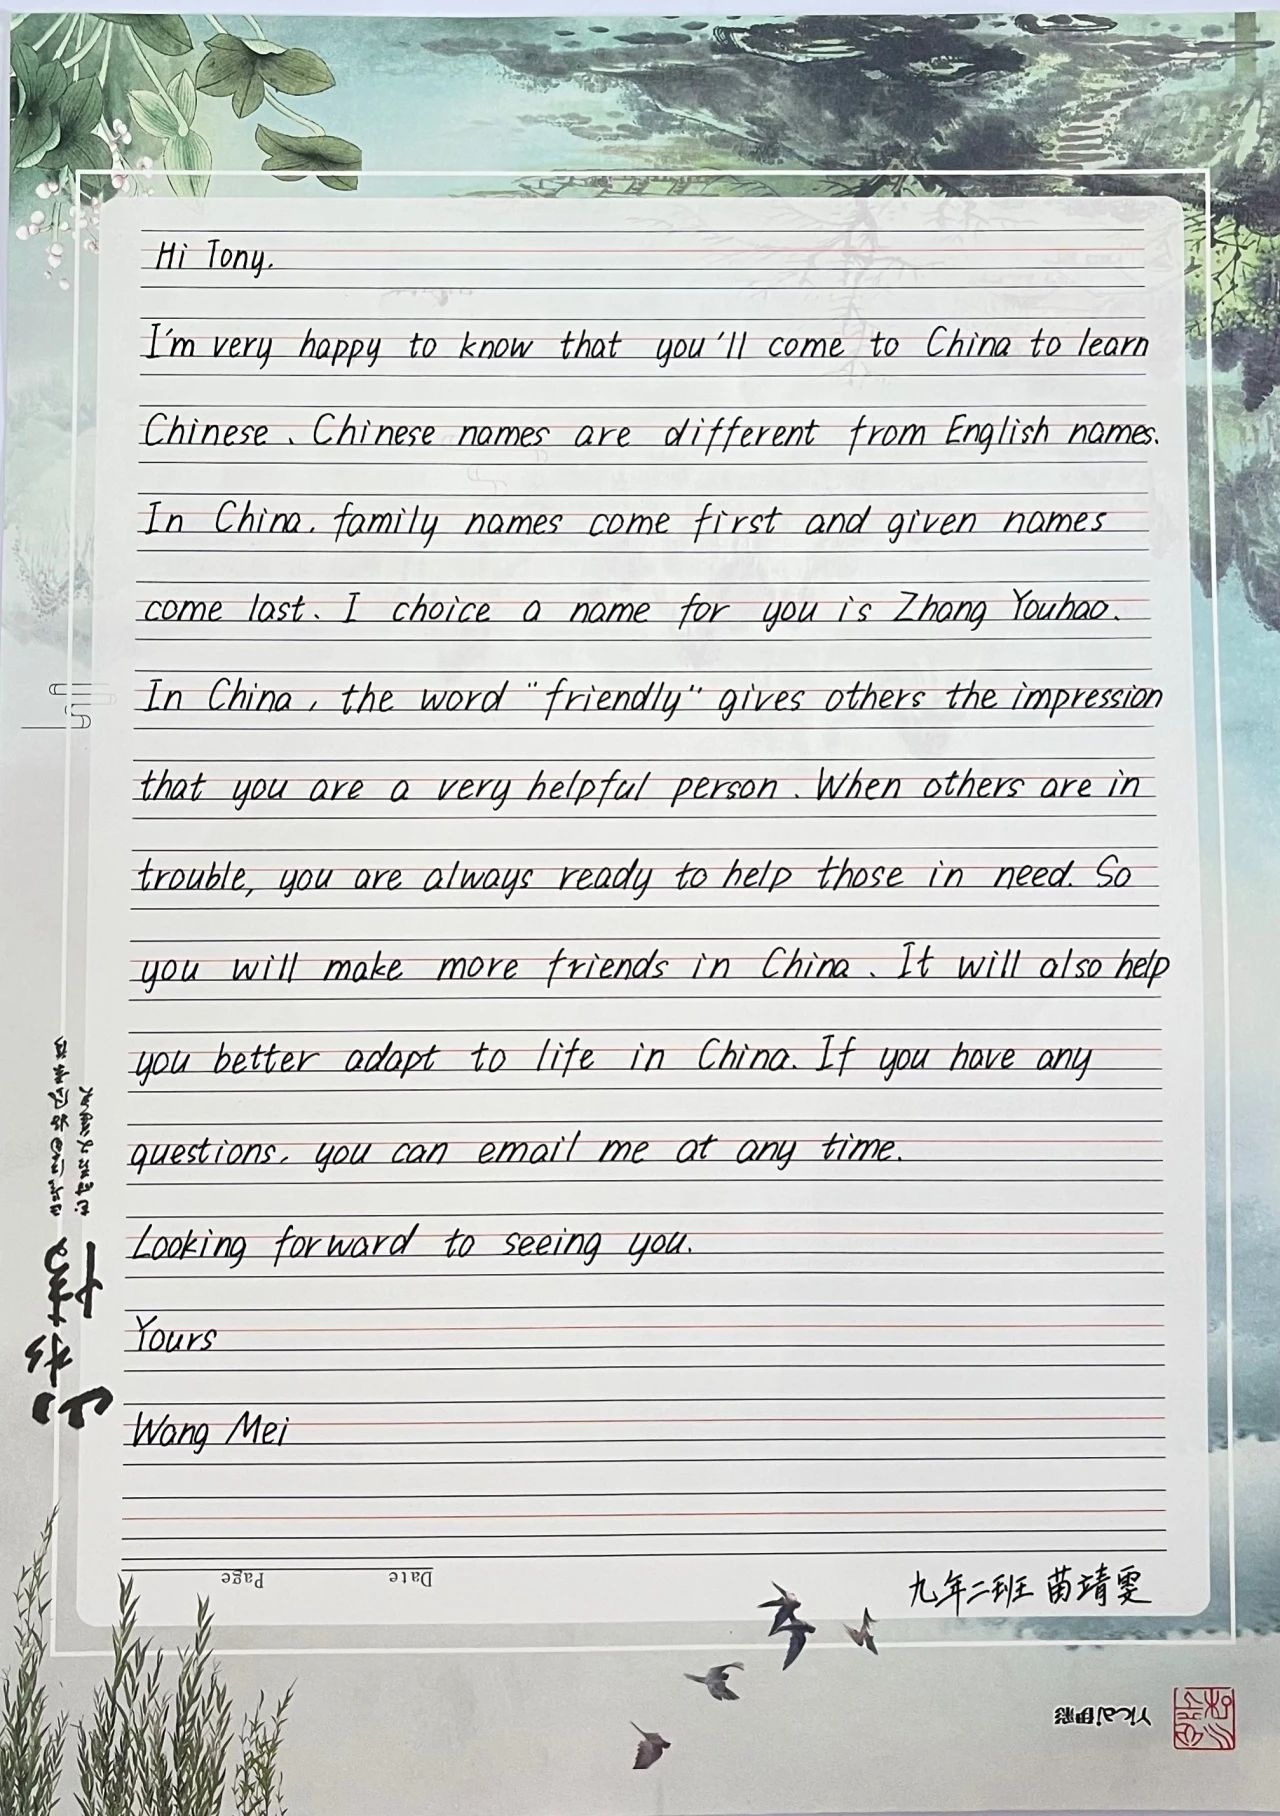 Hi Tony.
I'm very happy to know that you'll come to China to learn
Chinese. Chinese names are different from English names.
In China, family names come first and given names
come last. I choice a name for you is Zhang Youhao.
In China, the word "friendly" gives others the impression
that you are a very helpful person. When others are in
trouble, you are always ready to help those in need. So
you will make more friends in China. It will also help
you better adapt to life in China. If you have any
questions, you can email me at any time.
Looking forward to seeing you.
Yours
Wang Mei
Date
Page
九年二班 苗靖雯
Yicai伊彩